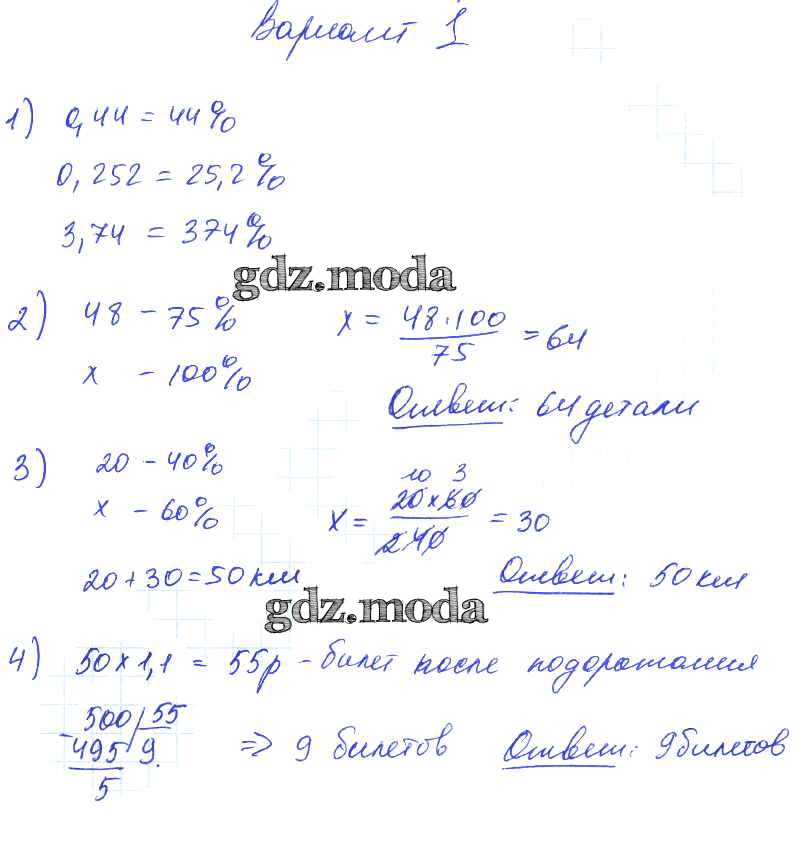 Вариант 1
1) 0,44 = 44%
0,252 = 25,2%
3,74 = 374%
gdz.moda
2) 48 - 75%
x - 100%
x = 48·100/75 = 64
Ответ: 64 детали
3) 20 - 40%
x - 60%
10 3
x = 20×60/240 = 30
20 + 30 = 50 км
Ответ: 50 км
gdz.moda
4) 50×1,1 = 55р - билет после подорожания
500 55
- 495 9.
5
=> 9 билетов
Ответ: 9 билетов